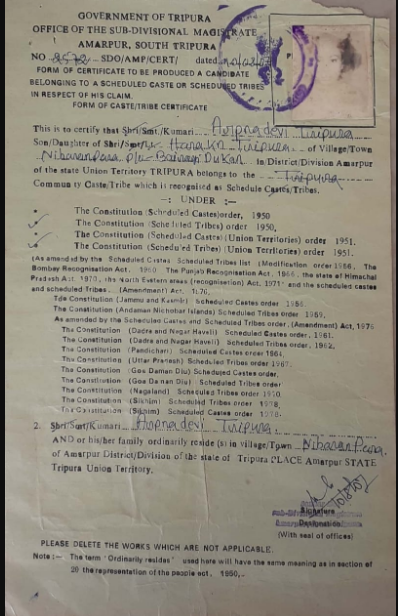 GOVERNMENT OF TRIPURA
OFFICE OF THE SUB-DIVISIONAL MAGISTRATE
AMARPUR, SOUTH TRIPURA
NO 8572 - SDO/AMP/CERT/ dated
FORM OF CERTIFICATE TO BE PRODUCED A CANDIDATE
BELONGING TO A SCHEDULED CASTE OR SCHEDULED TRIBES
IN RESPECT OF HIS CLAIM.
FORM OF CASTE/TRIBE CERTIFICATE
This is to certify that Shri/Smt/Kumari Tripura
Son/Daughter of Shri Tripura of Village/Town
Nibaranpara in District/Division Amarpur
of the state Union Territory TRIPURA belongs to the Tripura
Community Caste/Tribe which is recognised as Schedule Castes/Tribes.
-: UNDER :-
The Constitution (Scheduled Castes)order, 1950
The Constitution (Scheduled Tribes) order 1950,
The Constitution (Scheduled Castes) (Union Territories) order 1951.
The Constitution (Scheduled Tribes) (Union Territories) order 1951.
(As amended by the Scheduled Castes Scheduled Tribes list (Modification order 1956, The
Bombay Recognisation Act, 1960 The Punjab Recognisation Act, 1966, the state of Himachal
Pradesh Act 1970, the North Eastern areas (recognisation) Act, 1971 and the scheduled castes
and scheduled Tribes, (Amendment) Act, 1976,
The Constitution (Jammu and Kasmir) Scheduled Castes order 1956.
The Constitution (Andaman Nichobar Islands) Scheduled Tribes order 1959,
As amended by the Scheduled Castes and Scheduled Tribes order, (Amendment) Act, 1976
The Constitution (Dadra and Nagar Haveli) Scheduled Castes order, 1961.
The Constitution (Dadra and Nagar Haveli) Scheduled Castes order, 1962.
The Constitution (Pandichari) Scheduled Castes order 1964,
The Constitution (Uttar Pradesh) Scheduled Tribes order 1967.
The Constitution (Goa Daman Diu) Scheduled Castes order,
The Constitution (Goa Daman Diu) Scheduled Tribes order
The Constitution (Nagaland) Scheduled Tribes order 1970,
The Constitution (Sikhim) Scheduled Tribes order 1978,
The Constitution (Sikhim) Scheduled Castes order 1978.
2. Shri/Smt/Kumari Tripura
AND or his/her family ordinarily reside (s) in Village/Town Nibaran Para
of Amarpur District/Division of the state of Tripura PLACE Amarpur STATE
Tripura Union Territory.
Signature
Designation
(With seal of offices)
PLEASE DELETE THE WORKS WHICH ARE NOT APPLICABLE.
Note :- The term 'Ordinarily resides' used here will have the same meaning as in section of
20 the representation of the people act, 1950,-